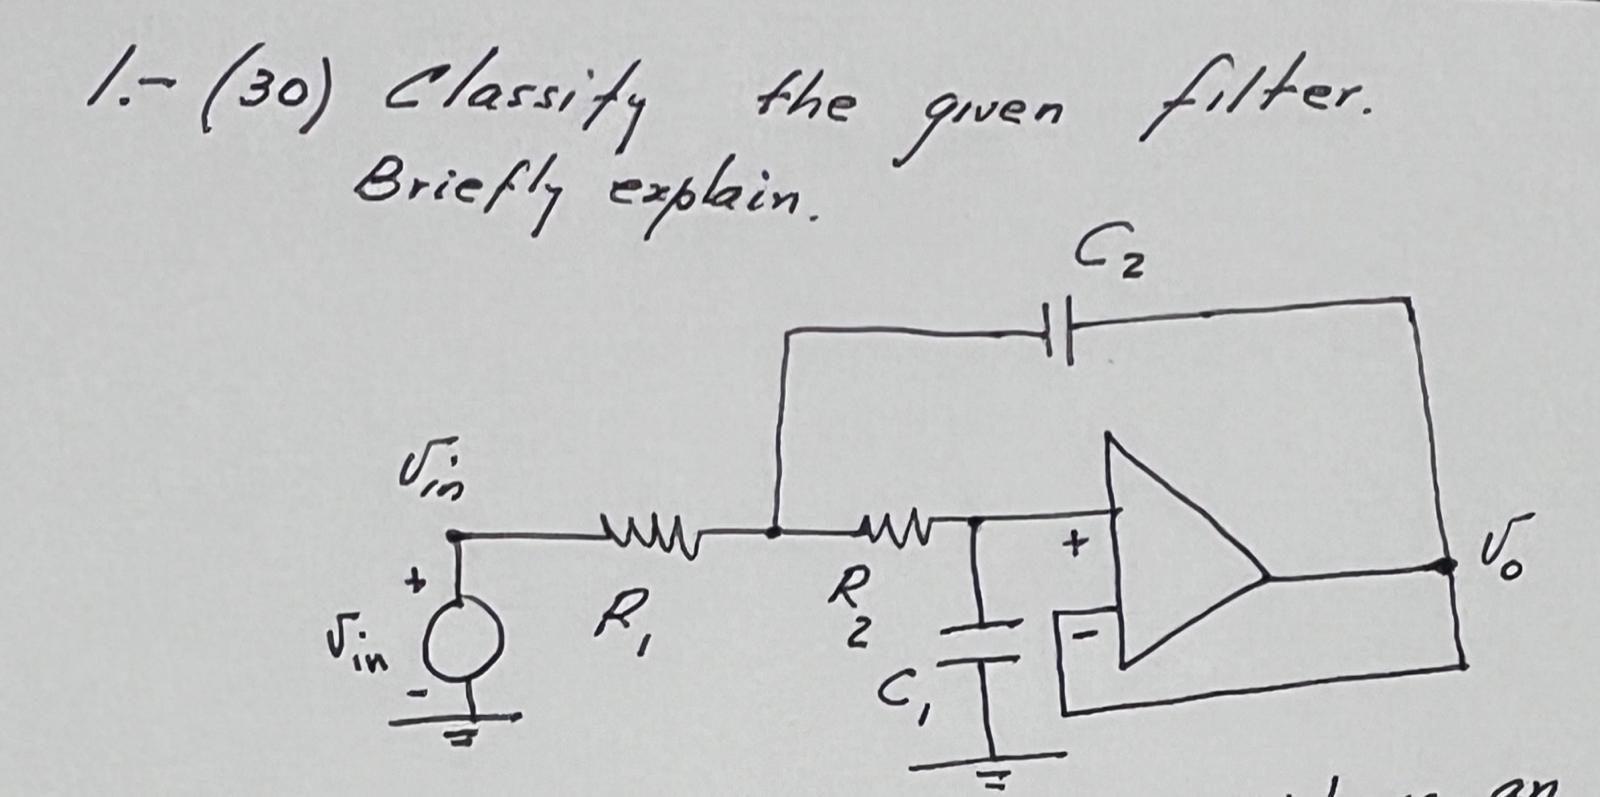 1.- (30) Classify the given filter.
Briefly explain.
C2
vin
+
vin
-
R1
R2
C1
+
-
vo
an